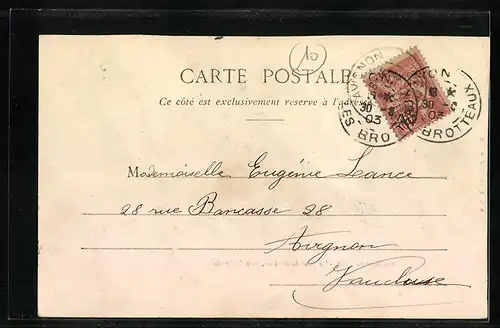 10
CARTE POSTALE
Ce côté est exclusivement réservé à l'adresse
LYON
LES BROTTEAUX
30
03
Mademoiselle Eugénie Lance
28 rue Bancasse 28
Avignon
Vaucluse